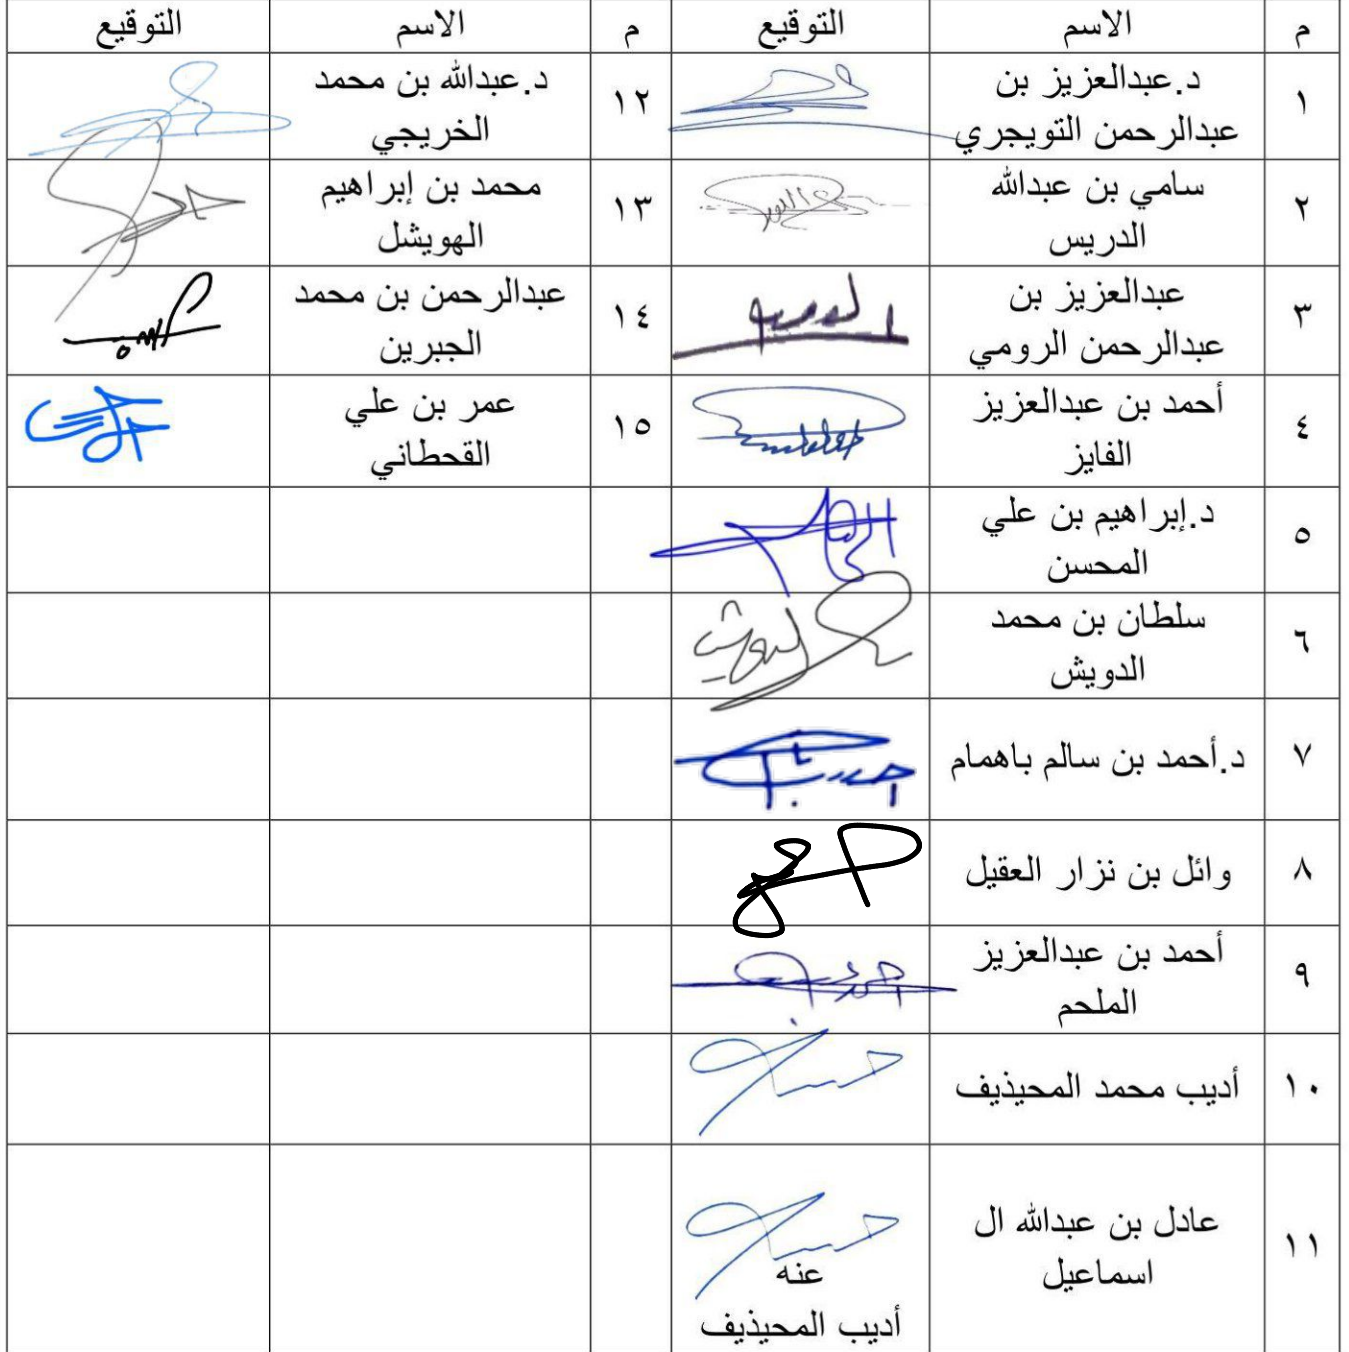 م الاسم التوقيع م الاسم التوقيع
١ د.عبدالعزيز بن
عبدالرحمن التويجري
١٢ د.عبدالله بن محمد
الخريجي
٢ سامي بن عبدالله
الدريس
١٣ محمد بن إبراهيم
الهويشل
٣ عبدالعزيز بن
عبدالرحمن الرومي
١٤ عبدالرحمن بن محمد
الجبرين
٤ أحمد بن عبدالعزيز
الفايز
١٥ عمر بن علي
القحطاني
٥ د.إبراهيم بن علي
المحسن
٦ سلطان بن محمد
الدويش
٧ د.أحمد بن سالم باهمام
٨ وائل بن نزار العقيل
٩ أحمد بن عبدالعزيز
الملحم
١٠ أديب محمد المحيذيف
١١ عادل بن عبدالله ال
اسماعيل
عنه
أديب المحيذيف